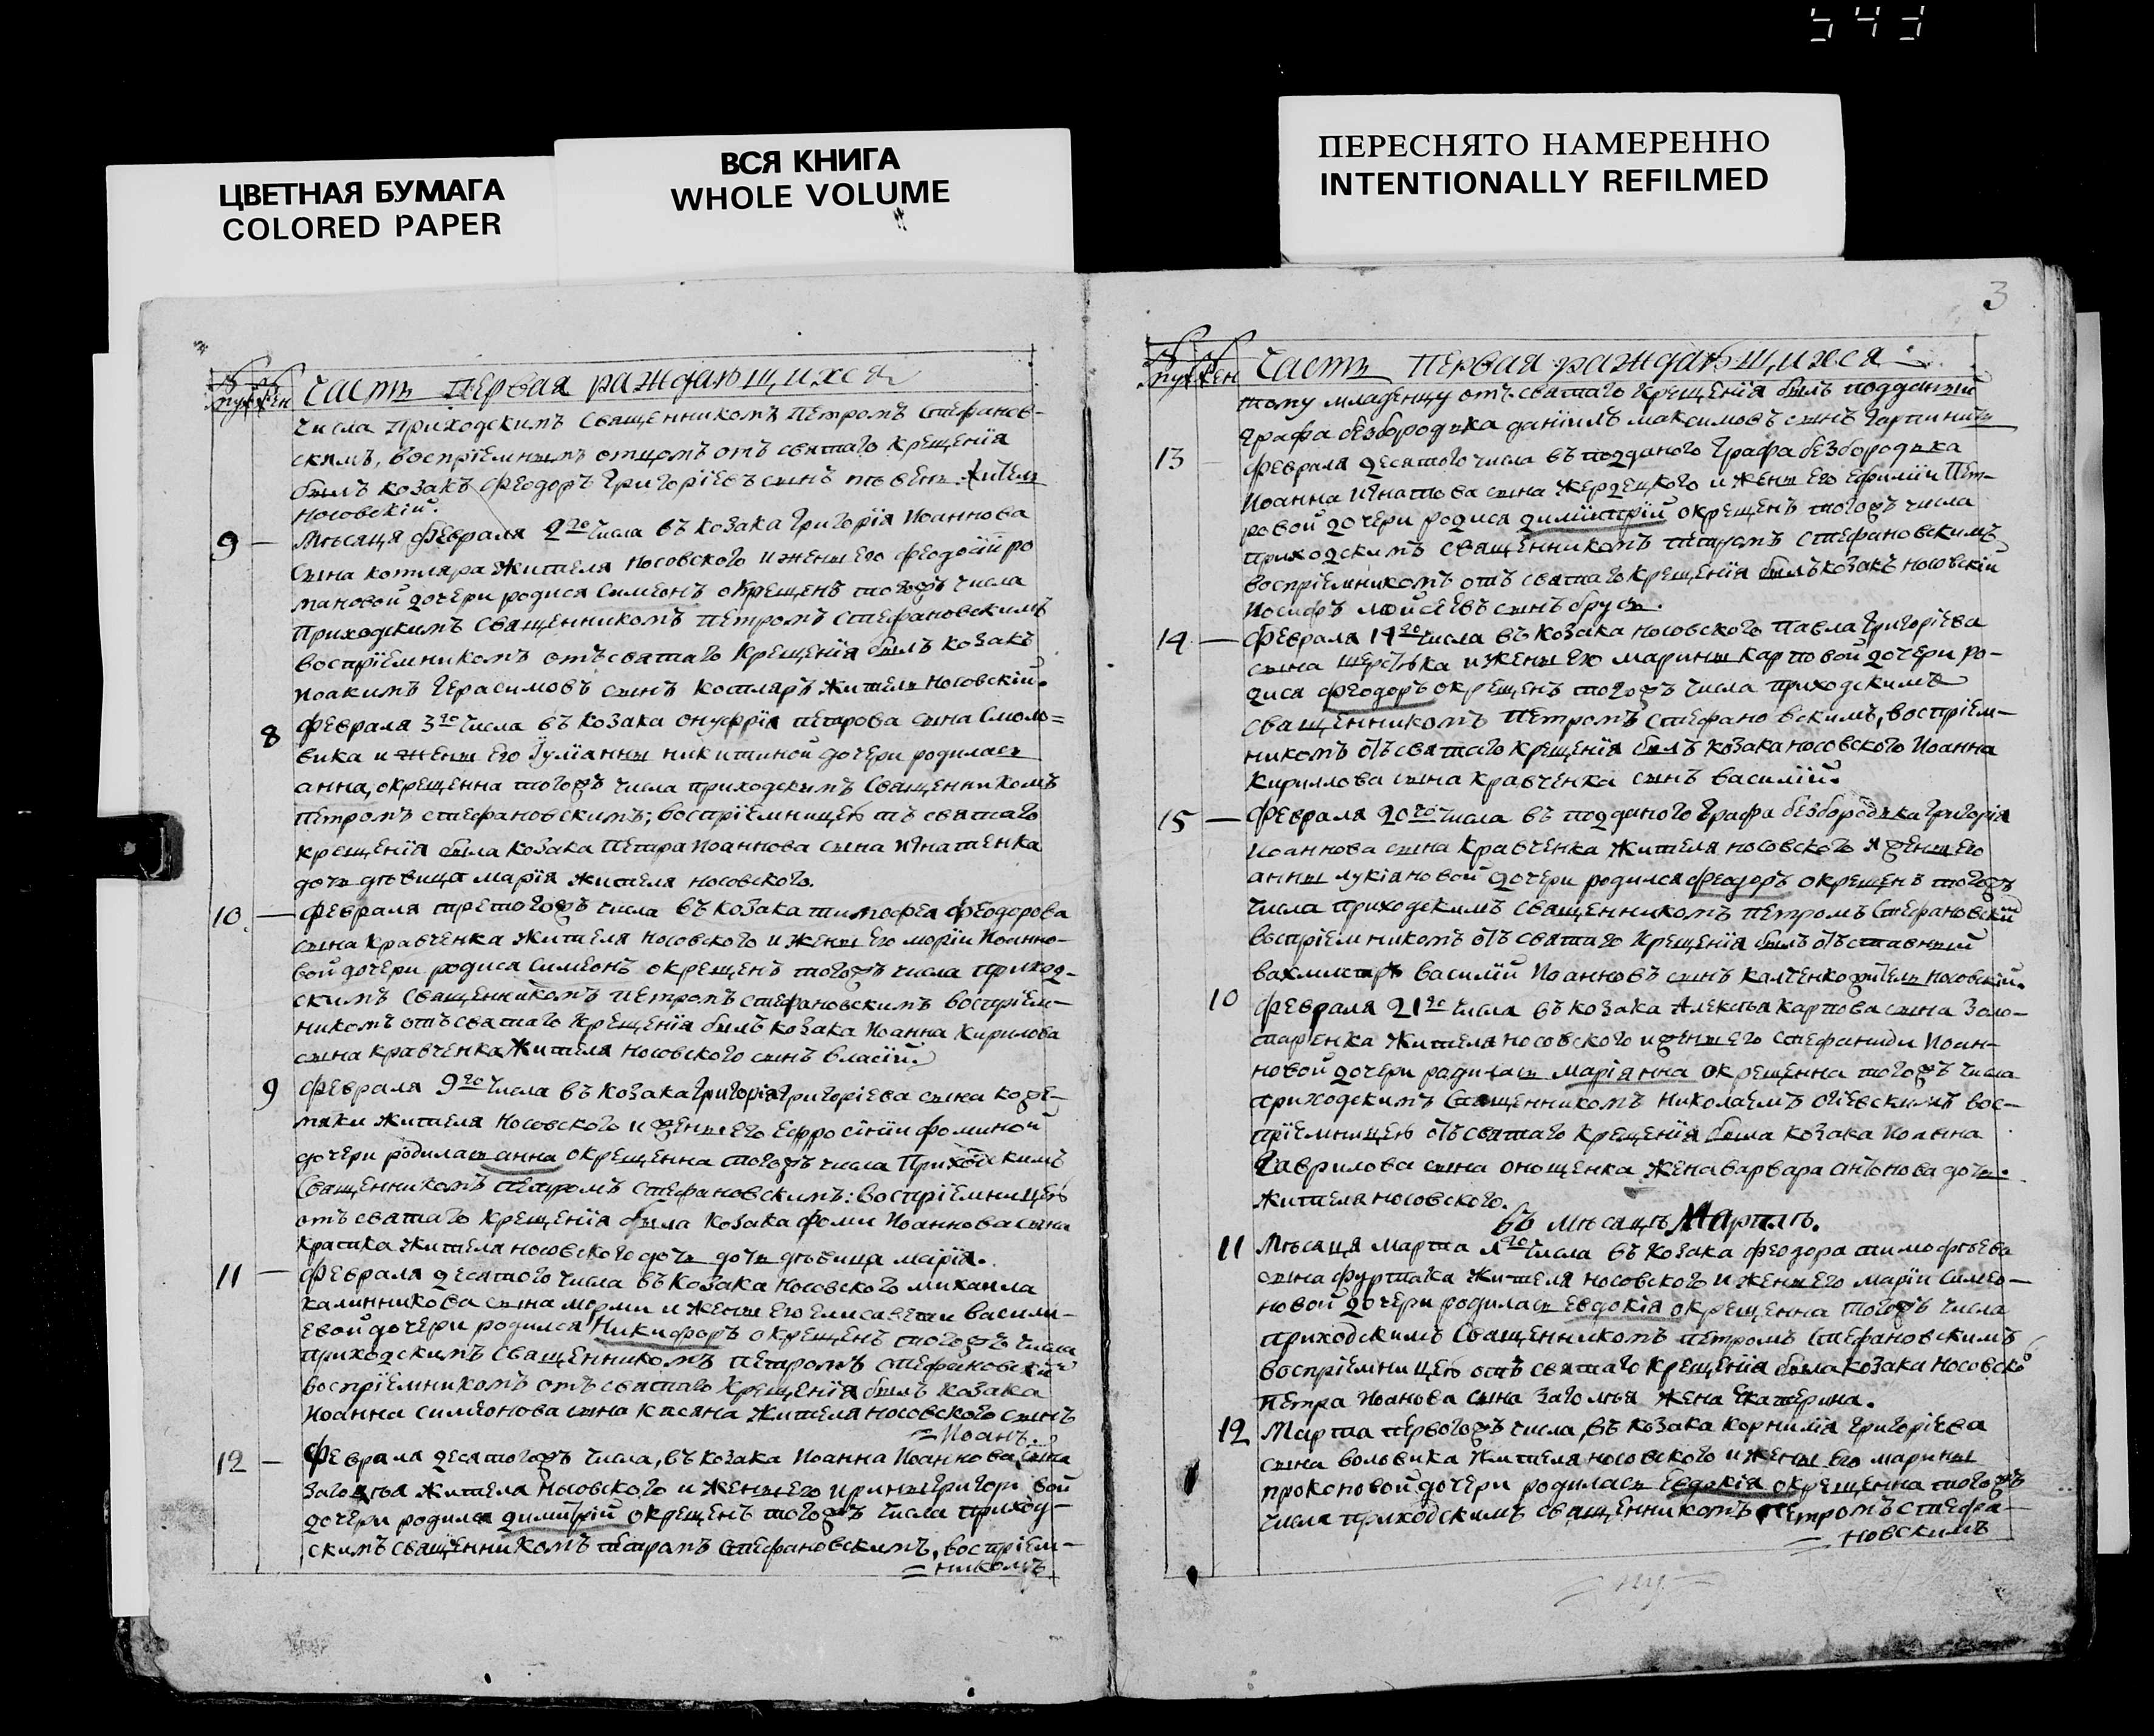 543
ЦВЕТНАЯ БУМАГА
COLORED PAPER
ВСЯ КНИГА
WHOLE VOLUME
ПЕРЕСНЯТО НАМЕРЕННО
INTENTIONALLY REFILMED
Часть первая раждающихся
числа приходскимъ священникомъ Петромъ Стефанов-
скимъ, воспріемнымъ отцомъ отъ святаго крещенія
былъ козакъ Феодоръ Григоріевъ сынъ житель
носовскій.
9 — Мѣсяця февраля 2го числа въ козака Григорія Иоаннова
сына котляра жителя носовского и жены его Феодосіи ро
мановой дочери родися Симеонъ окрещенъ тогожъ числа
приходскимъ священникомъ Петромъ Стефановскимъ
воспріемникомъ отъ святаго крещенія былъ козакъ
Иоакимъ Герасимовъ сынъ Котляръ житель носовскій.
8 Февраля 3го числа въ козака Онуфрія Петрова сына Смоло=
вика и жены его Іуліанны никитиной дочери родилась
анна, окрещенна тогожъ числа приходскимъ священникомъ
Петромъ Стефановскимъ; воспріемницею тъ святаго
крещенія была козака Петра Иоаннова сына Игнатенка
дочь дѣвица Марія жителя носовского.
10. — Февраля третогожъ числа въ козака тимофея Феодорова
сына кравченка жителя носовского и жены его Маріи Иоанно-
вой дочери родися Симеонъ окрещенъ тогожъ числа приход-
скимъ священникомъ Петромъ Стефановскимъ воспріем-
никомъ отъ святаго крещенія былъ козака Иоанна Кирилова
сына кравченка жителя носовского сынъ власій.
9 Февраля 9го числа въ козака Григорія Григоріева сына коже-
мяки жителя носовского и жены его Ефросініи Фоминой
дочери родилась анна окрещенна тогожъ числа приходскимъ
священникомъ Петромъ Стефановскимъ: воспріемницею
отъ святаго крещенія была козака Фоми Иоаннова сына
кратка жителя носовского дочь дочь дѣвица марія.
11 — Февраля десятого числа въ козака носовского михаила
калинникова сына и жены его Елисавети васили-
евой дочери родился Никифоръ окрещенъ тогожъ числа
приходскимъ священникомъ Петромъ Стефановскимъ
воспріемникомъ отъ святаго крещенія былъ козака
Иоанна симеонова сына касяна жителя носовского сынъ
= Иоанъ.
12 — Февраля десятогожъ числа, въ козака Иоанна Иоаннова сына
жителя носовского и жены его ирины григори вой
дочери родился димитрій окрещенъ тогожъ числа приход-
скимъ священникомъ петромъ Стефановскимъ, воспріем-
= никомъ
3
Часть Первая раждающихся
тому младенцу отъ святаго крещенія былъ подданный
графа безбородька даніилъ максимовъ сынъ
13 — Февраля десятого числа въ подданого Графа безбородька
Иоанна Игнатова сына Жердецкого и жены его Ефиміи Пет-
ровой дочери родися димитрій окрещенъ тогожъ числа
приходскимъ священникомъ петромъ стефановскимъ
воспріемникомъ отъ святаго крещенія былъ козакъ носовскій
Иосифъ мойсеевъ сынъ брусъ.
14 — Февраля 14го числа въ козака носовского Павла Григоріева
сына и жены его марины карповой дочери ро-
дися Феодоръ окрещенъ тогожъ числа приходскимъ
священникомъ Петромъ Стефановскимъ, воспріем-
никомъ отъ святаго крещенія былъ козака носовского Иоанна
кириллова сына кравченка сынъ василій.
15 — Февраля 20го числа въ подданого Графа безбородька Григорія
Иоаннова сына кравченка жителя носовского и жены его
анны лукіановой дочери родился Феодоръ окрещенъ тогожъ
числа приходскимъ священникомъ Петромъ Стефановскимъ
воспріемникомъ отъ святаго крещенія былъ отъставный
вахмистръ василій Иоанновъ сынъ калченко житель носовскій.
10 Февраля 21го числа въ козака Алексѣя Карпова сына Золо-
таренка жителя носовского и жены его Стефаниди Иоан-
новой дочери радилась Маріянна окрещенна тогожъ числа
приходскимъ священникомъ николаемъ вос-
пріемницею отъ святаго крещенія была козака Иоанна
Гаврилова сына онощенка жена варвара дочь.
жителя носовского.
въ Мѣсяцѣ Мартѣ.
11 Мѣсяця марта 1го числа въ козака Феодора тимофѣева
сына Фурпака жителя носовского и жены его маріи симео-
новой дочери родилась Евдокія окрещенна тогожъ числа
приходскимъ священникомъ петромъ стефановскимъ
воспріемницею отъ святаго крещенія была козака носовско
Петра Иоанова сына жена Екатерина.
12 Марта первогожъ числа, въ козака корнилія григоріева
сына воловика жителя носовского и жены его марины
прокоповой дочери родилась Евдокія окрещенна тогожъ
числа приходскимъ священникомъ Петромъ Стефа-
= новскимъ